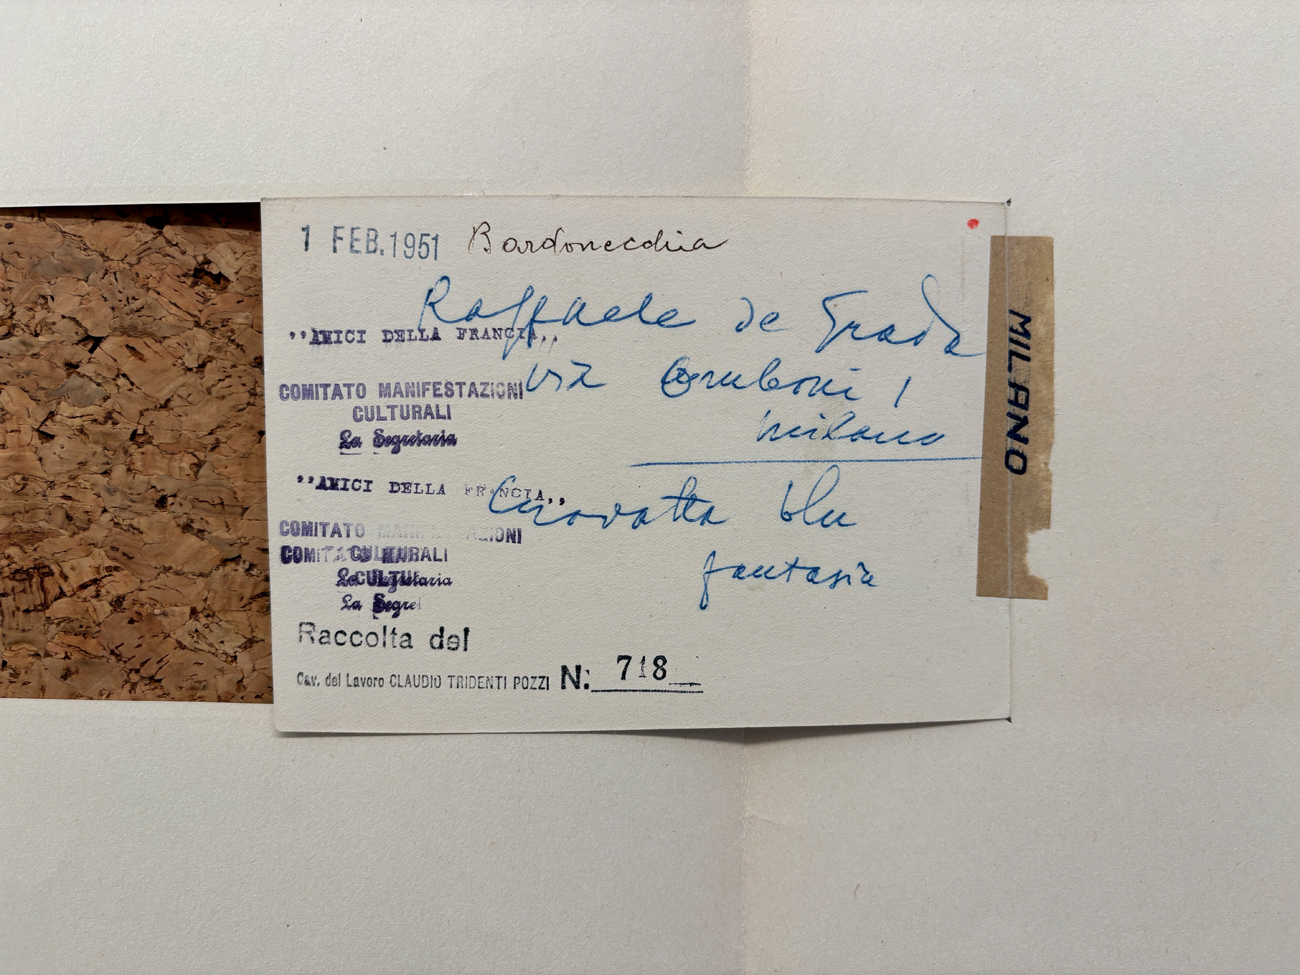 1 FEB.1951 Bardonecchia
Raffaele de Grada
’’AMICI DELLA FRANCIA,,
via 1
COMITATO MANIFESTAZIONI
CULTURALI
milano
La Segretaria
’’AMICI DELLA FRANCIA,,
Cravatta blu
COMITATO MANIFESTAZIONI
COMITATO CULTURALI
fantasia
La Segretaria
La Segret
Raccolta del
Cav. del Lavoro CLAUDIO TRIDENTI POZZI N: 718
MILANO